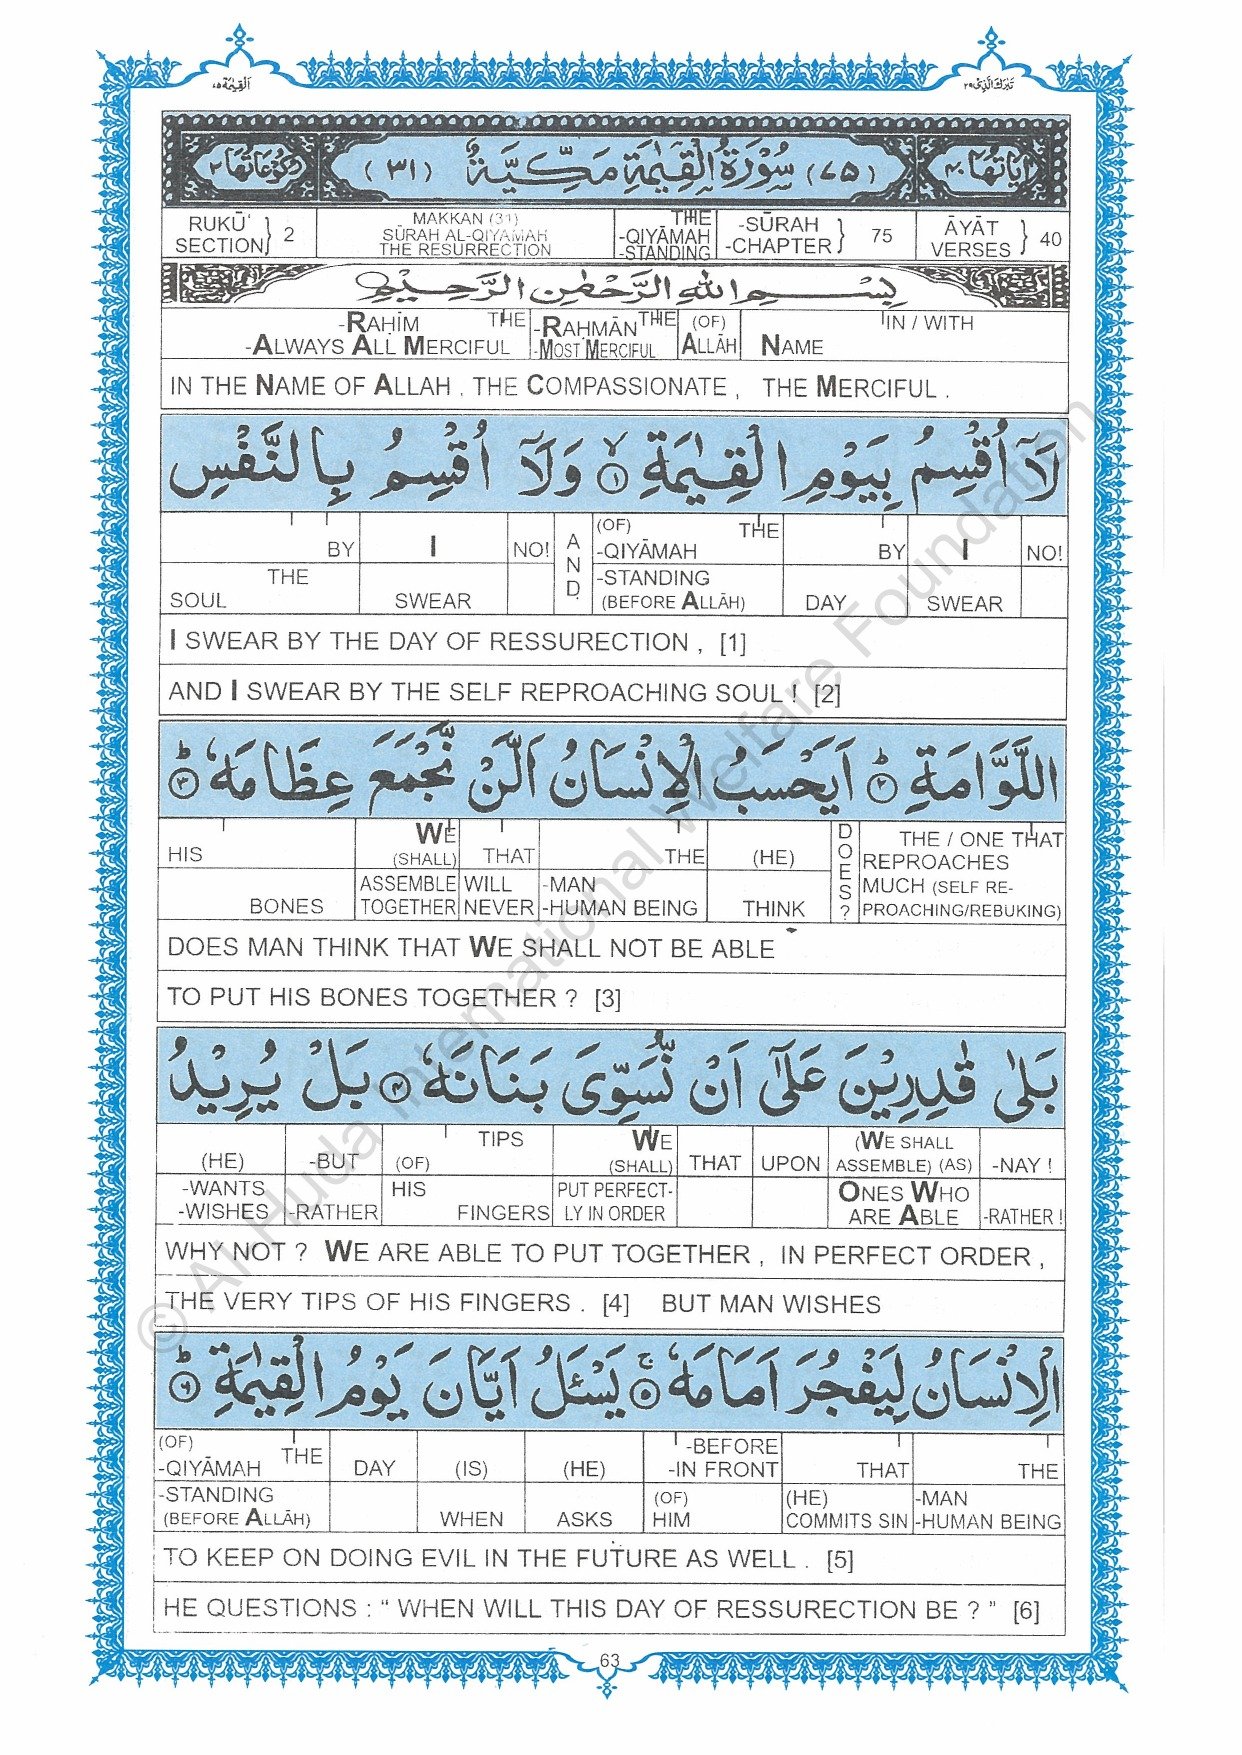 اَلْقِيٰمَة ٧٥
تَبٰرَكَ الَّذِیْ ٢٩
اٰيَاتُهَا ٤٠ (٧٥) سُوْرَةُ الْقِيٰمَةِ مَكِّيَّةٌ (٣١) رُكُوْعَاتُهَا ٢
RUKŪ‘ SECTION} 2 MAKKAN (31) SŪRAH AL-QIYĀMAH THE RESURRECTION THE -QIYĀMAH -STANDING -SŪRAH -CHAPTER} 75 ĀYĀT VERSES} 40
بِسْمِ اللّٰهِ الرَّحْمٰنِ الرَّحِيْمِ
-RAḤĪM THE -RAḤMĀN THE (OF) IN / WITH
-ALWAYS ALL MERCIFUL -MOST MERCIFUL ALLĀH NAME
IN THE NAME OF ALLAH , THE COMPASSIONATE , THE MERCIFUL .
لَآ اُقْسِمُ بِيَوْمِ الْقِيٰمَةِ ۙ﴿١﴾ وَلَآ اُقْسِمُ بِالنَّفْسِ
BY I NO! AND (OF) THE -QIYĀMAH BY I NO!
THE SOUL SWEAR -STANDING (BEFORE ALLĀH) DAY SWEAR
I SWEAR BY THE DAY OF RESSURECTION , [1]
AND I SWEAR BY THE SELF REPROACHING SOUL ! [2]
اللَّوَّامَةِ ؕ﴿٢﴾ اَيَحْسَبُ الْاِنْسَانُ اَلَّنْ نَّجْمَعَ عِظَامَهٗ ؕ﴿٣﴾
HIS WE (SHALL) THAT THE (HE) DOES? THE / ONE THAT REPROACHES
BONES ASSEMBLE TOGETHER WILL NEVER -MAN -HUMAN BEING THINK MUCH (SELF RE-PROACHING/REBUKING)
DOES MAN THINK THAT WE SHALL NOT BE ABLE
TO PUT HIS BONES TOGETHER ? [3]
بَلٰى قٰدِرِيْنَ عَلٰٓى اَنْ نُّسَوِّىَ بَنَانَهٗ ﴿٤﴾ بَلْ يُرِيْدُ
(HE) -BUT (OF) TIPS WE (SHALL) THAT UPON (WE SHALL ASSEMBLE) (AS) -NAY !
-WANTS -WISHES -RATHER HIS FINGERS PUT PERFECT-LY IN ORDER ONES WHO ARE ABLE -RATHER !
WHY NOT ? WE ARE ABLE TO PUT TOGETHER , IN PERFECT ORDER ,
THE VERY TIPS OF HIS FINGERS . [4] BUT MAN WISHES
الْاِنْسَانُ لِيَفْجُرَ اَمَامَهٗ ۚ﴿٥﴾ يَسْـَٔلُ اَيَّانَ يَوْمُ الْقِيٰمَةِ ؕ﴿٦﴾
(OF) -QIYĀMAH THE DAY (IS) (HE) -BEFORE -IN FRONT THAT THE
-STANDING (BEFORE ALLĀH) WHEN ASKS (OF) HIM (HE) COMMITS SIN -MAN -HUMAN BEING
TO KEEP ON DOING EVIL IN THE FUTURE AS WELL . [5]
HE QUESTIONS : “ WHEN WILL THIS DAY OF RESSURECTION BE ? ” [6]
63
© Al Huda International Welfare Foundation